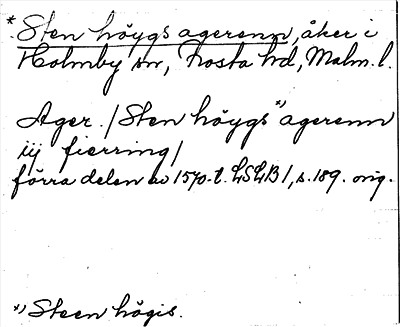 *Sten höygs agerenn, åker i
Holmby sn, Frosta hd, Malm. l.
Ager. /Sten höygs *) agerenn
iij fierring/
förra delen av 1570-t. LSLB 1, s. 189. orig.
*) Steen högis.